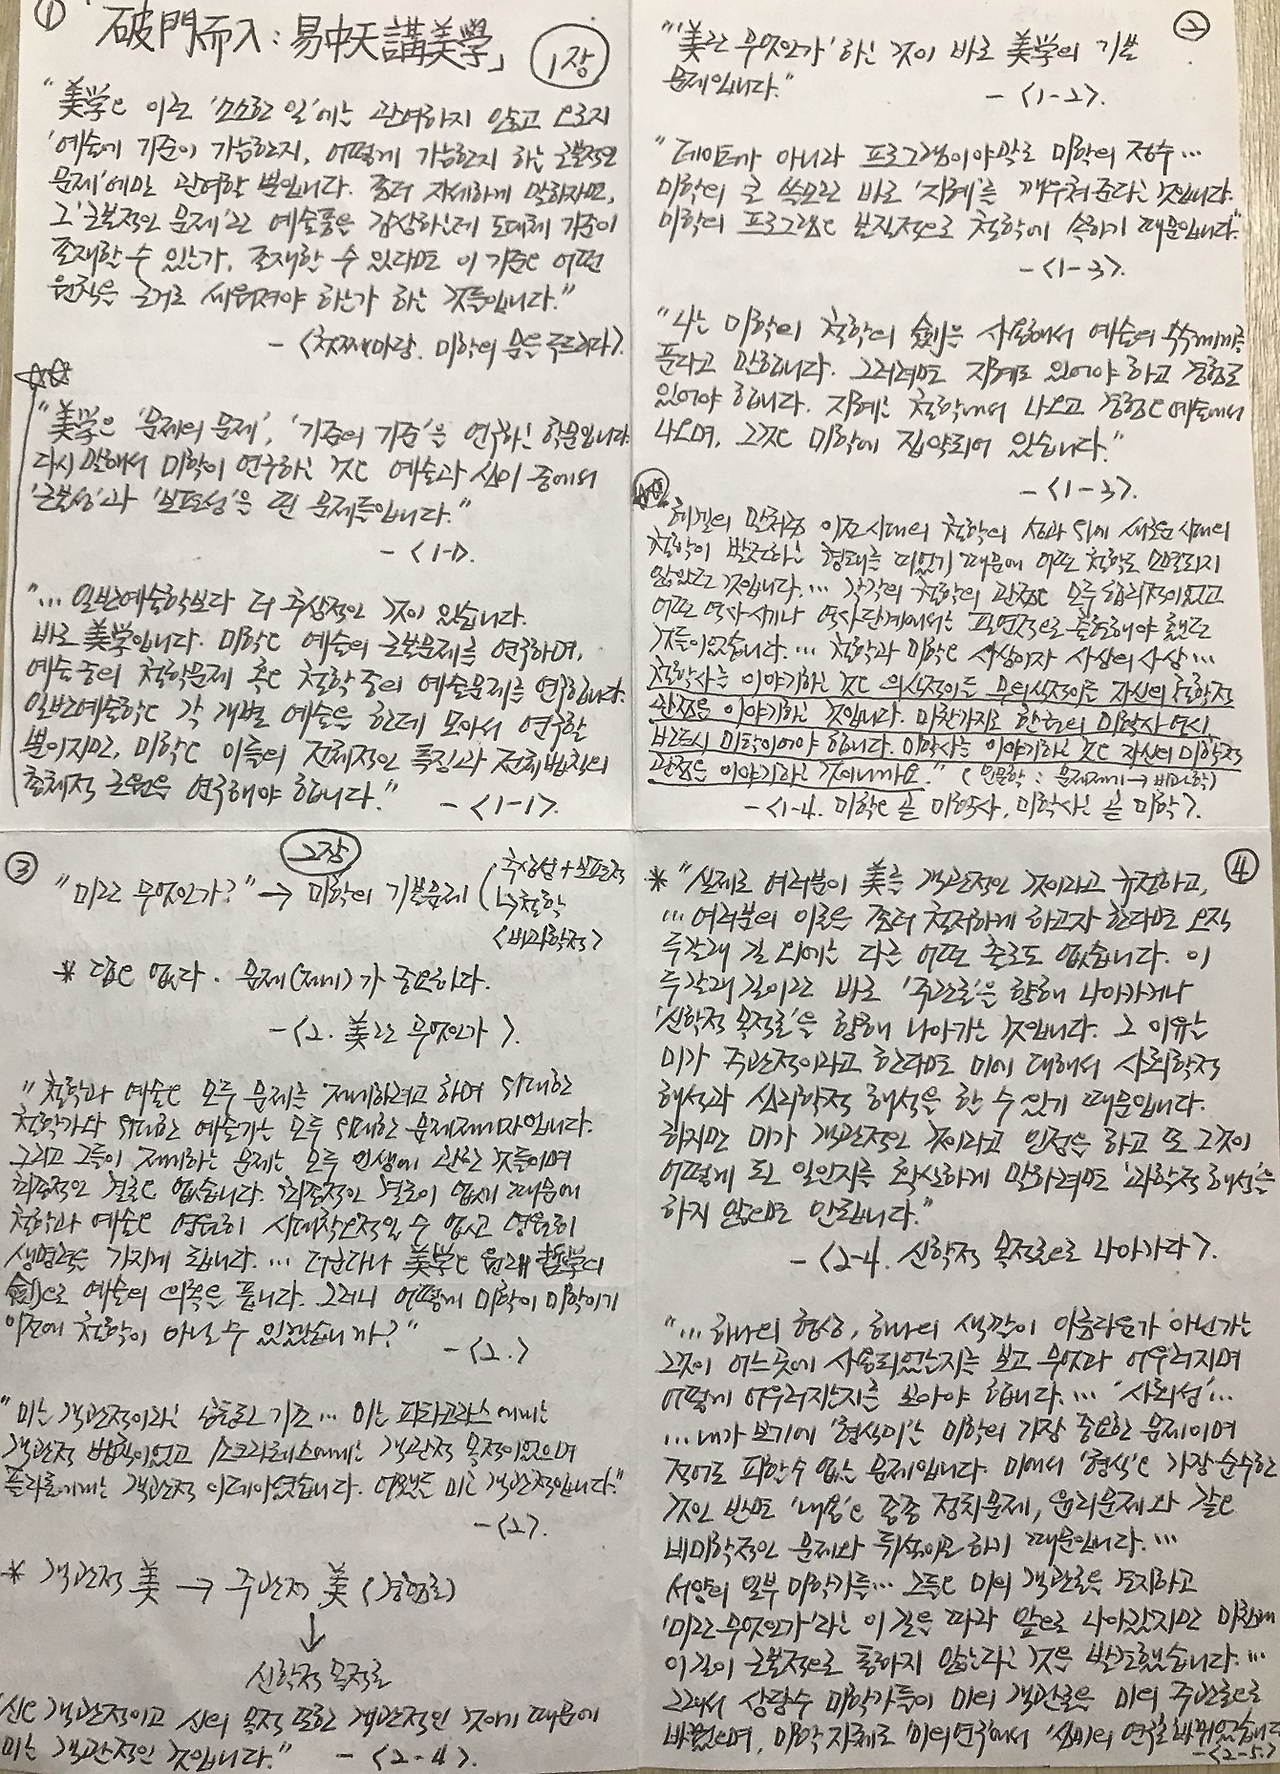 ①
「破門而入: 易中天講美學」 1장
"美学은 이런 '소소한 일'에는 관여하지 않고 오로지
'예술에 기준이 가능한지, 어떻게 가능한지 하는 근본적인
문제'에만 관여할 뿐입니다. 좀더 자세하게 말하자면,
그 '근본적인 문제'란 예술품을 감상하는데 도대체 기준이
존재할 수 있는가, 존재할 수 있다면 이 기준은 어떤
원칙을 근거로 세워져야 하는가 하는 것들입니다."
- <첫째마당. 미학의 문을 두드리다>.
☆☆
"美学은 '문제의 문제', '기준의 기준'을 연구하는 학문입니다.
다시 말해서 미학이 연구하는 것은 예술과 심미 중에서
'근본성'과 '보편성'을 띤 문제들입니다."
- <1-1>.
"... 일반예술학보다 더 추상적인 것이 있습니다.
바로 美学입니다. 미학은 예술의 근본문제를 연구하며,
예술 중의 철학문제 혹은 철학 중의 예술문제를 연구합니다.
일반예술학은 각 개별 예술을 한데 모아서 연구할
뿐이지만, 미학은 이들의 전체적인 특징과 전체법칙의
총체적 근원을 연구해야 합니다."
- <1-1>.
②
"'美란 무엇인가' 하는 것이 바로 美学의 기본
문제입니다."
- <1-2>.
"데이터가 아니라 프로그램이야말로 미학의 정수...
미학의 큰 쓸모란 바로 '지혜'를 깨우쳐준다는 것입니다.
미학의 프로그램은 본질적으로 철학에 속하기 때문입니다."
- <1-3>.
"나는 미학이 철학의 劍을 사용해서 예술의 수수께끼를
푼다고 말합니다. 그러려면 지혜도 있어야 하고 경험도
있어야 합니다. 지혜는 철학에서 나오고 경험은 예술에서
나오며, 그것은 미학에 집약되어 있습니다."
- <1-3>.
☆☆
"헤겔의 말처럼 이전시대의 철학의 성과 위에 새로운 시대의
철학이 발전하는 형태를 띠었기 때문에 어떤 철학도 멸망되지
않았던 것입니다. ... 각각의 철학의 관점은 모두 합리적이었고
어떤 역사시기나 역사단계에서는 필연적으로 출현해야 했던
것들이었습니다. ... 철학과 미학은 사상이자 사상의 사상...
철학사를 이야기하는 것은 의식적이든 무의식적이든 자신의 철학적
관점을 이야기하는 것입니다. 마찬가지로 한 권의 미학사 역시
반드시 미학이어야 합니다. 미학사를 이야기하는 것은 자신의 미학적
관점을 이야기하는 것이니까요." (인문학 : 문제제기 → 비과학)
- <1-4. 미학은 곧 미학사, 미학사는 곧 미학>.
③
2장
"미란 무엇인가?" → 미학의 기본문제 (추상성 + 보편적
↳ 철학
<비과학적>
* 답은 없다. 문제(제기)가 중요하다.
- <2. 美란 무엇인가>.
"철학과 예술은 모두 문제를 제기하려고 하며 위대한
철학가와 위대한 예술가는 모두 위대한 문제제기자입니다.
그리고 그들이 제기하는 문제는 모두 인생에 관한 것들이며
최종적인 결론은 없습니다. 최종적인 결론이 없기 때문에
철학과 예술은 영원히 시대착오적일 수 없고 영원히
생명력을 가지게 됩니다. ... 더군다나 美学은 원래 哲学의
劍으로 예술의 의혹을 풉니다. 그러니 어떻게 미학이 미학이기
이전에 철학이 아닐 수 있겠습니까?"
- <2.>
"미는 객관적이라는 상동한 기조... 미는 피타고라스에게는
객관적 법칙이었고 소크라테스에게는 객관적 목적이었으며
플라톤에게는 객관적 이데아였습니다. 어쨌든 미는 객관적입니다."
- <2>.
* 객관적 美 → 주관적 美 (경험론)
↓
신학적 목적론
"신은 객관적이고 신의 목적 또한 객관적인 것이기 때문에
미는 객관적인 것입니다." - <2-4>.
④
* "실제로 여러분이 美를 객관적인 것이라고 규정하고,
... 여러분의 이론을 좀더 철저하게 하고자 한다면 오직
두 갈래 길 외에는 다른 어떤 출로도 없습니다. 이
두 갈래 길이란 바로 '주관론'을 향해 나아가거나
'신학적 목적론'을 향해 나아가는 것입니다. 그 이유는
미가 주관적이라고 한다면 미에 대해서 사회학적
해석과 심리학적 해석을 할 수 있기 때문입니다.
하지만 미가 객관적인 것이라고 인정을 하고 또 그것이
어떻게 된 일인지를 확실하게 말하려면 '과학적 해석'을
하지 않으면 안됩니다."
- <2-4. 신학적 목적론으로 나아가다>.
"... 하나의 형상, 하나의 색깔이 아름다운가 아닌가는
그것이 어느 곳에 사용되었는지를 보고 무엇과 어우러지며
어떻게 어우러지는지를 보아야 합니다. ... '사회성'...
... 내가 보기에 '형식미'는 미학의 가장 중요한 문제이며
적어도 피할 수 없는 문제입니다. 미에서 '형식'은 가장 순수한
것인 반면 '내용'은 종종 정치문제, 윤리문제와 같은
비미학적인 문제와 뒤섞이곤 하기 때문입니다. ...
서양의 일부 미학가들... 그들은 미의 객관론을 견지하고
'미란 무엇인가'라는 이 길을 따라 앞으로 나아갔지만 마침내
이 길이 근본적으로 통하지 않는다는 것을 발견했습니다. ...
그래서 상당수 미학가들이 미의 객관론을 미의 주관론으로
바꿨으며, 미학 자체도 '미의 연구'에서 '심미의 연구'로 바뀌었습니다
- <2-5.>